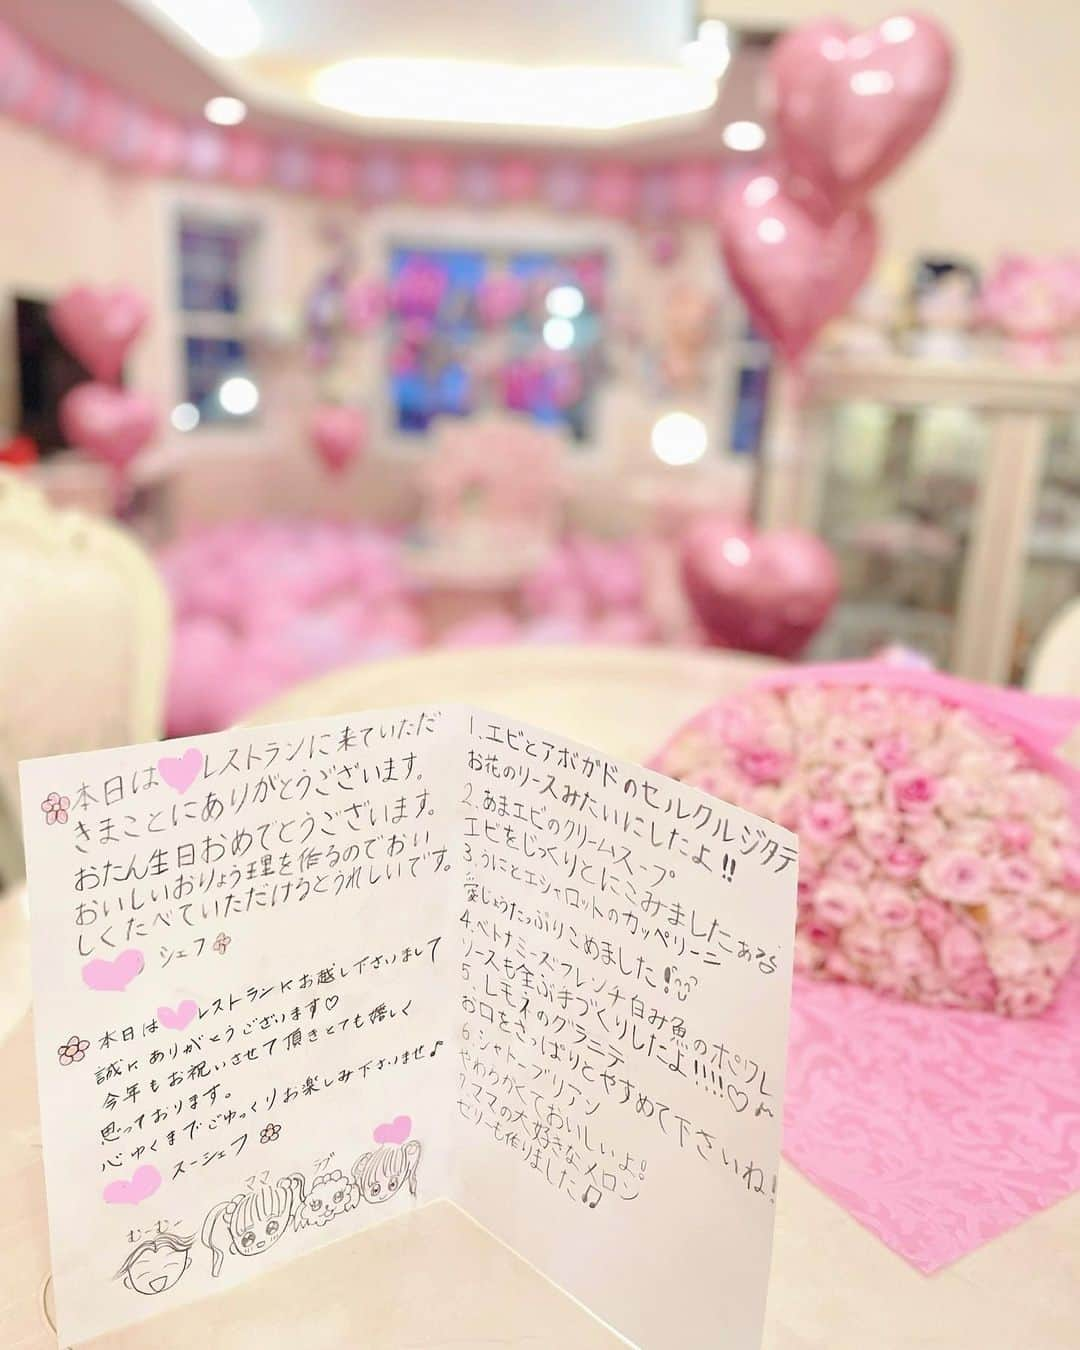 本日はレストランに来ていただ
きまことにありがとうございます。
おたん生日おめでとうございます。
おいしいおりょう理を作るのでおい
しくたべていただけるとうれしいです。
シェフ
本日はレストランにお越し下さいまして
誠にありがとうございます♡
今年もお祝いさせて頂きとても嬉しく
思っております。
心ゆくまでごゆっくりお楽しみ下さいませ♪
スーシェフ
むーむー
ママ
ラブ
1.エビとアボガドのセルクルジタテ
お花のリースみたいにしたよ!!
2.あまエビのクリームスープ
エビをじっくりとにこみました
3.うにとエシャロットのカッペリーニ
愛じょうたっぷりこめました!
4.ベトナミーズフレンチ白み魚のポワレ
ソースも全ぶ手づくりしたよ!!!!♡♪
5.レモネのグラニテ
お口をさっぱりとやすめて下さいね!
6.シャトーブリアン
やわらかくておいしいよ!
7.ママの大好きなメロン
ゼリーも作りました♫